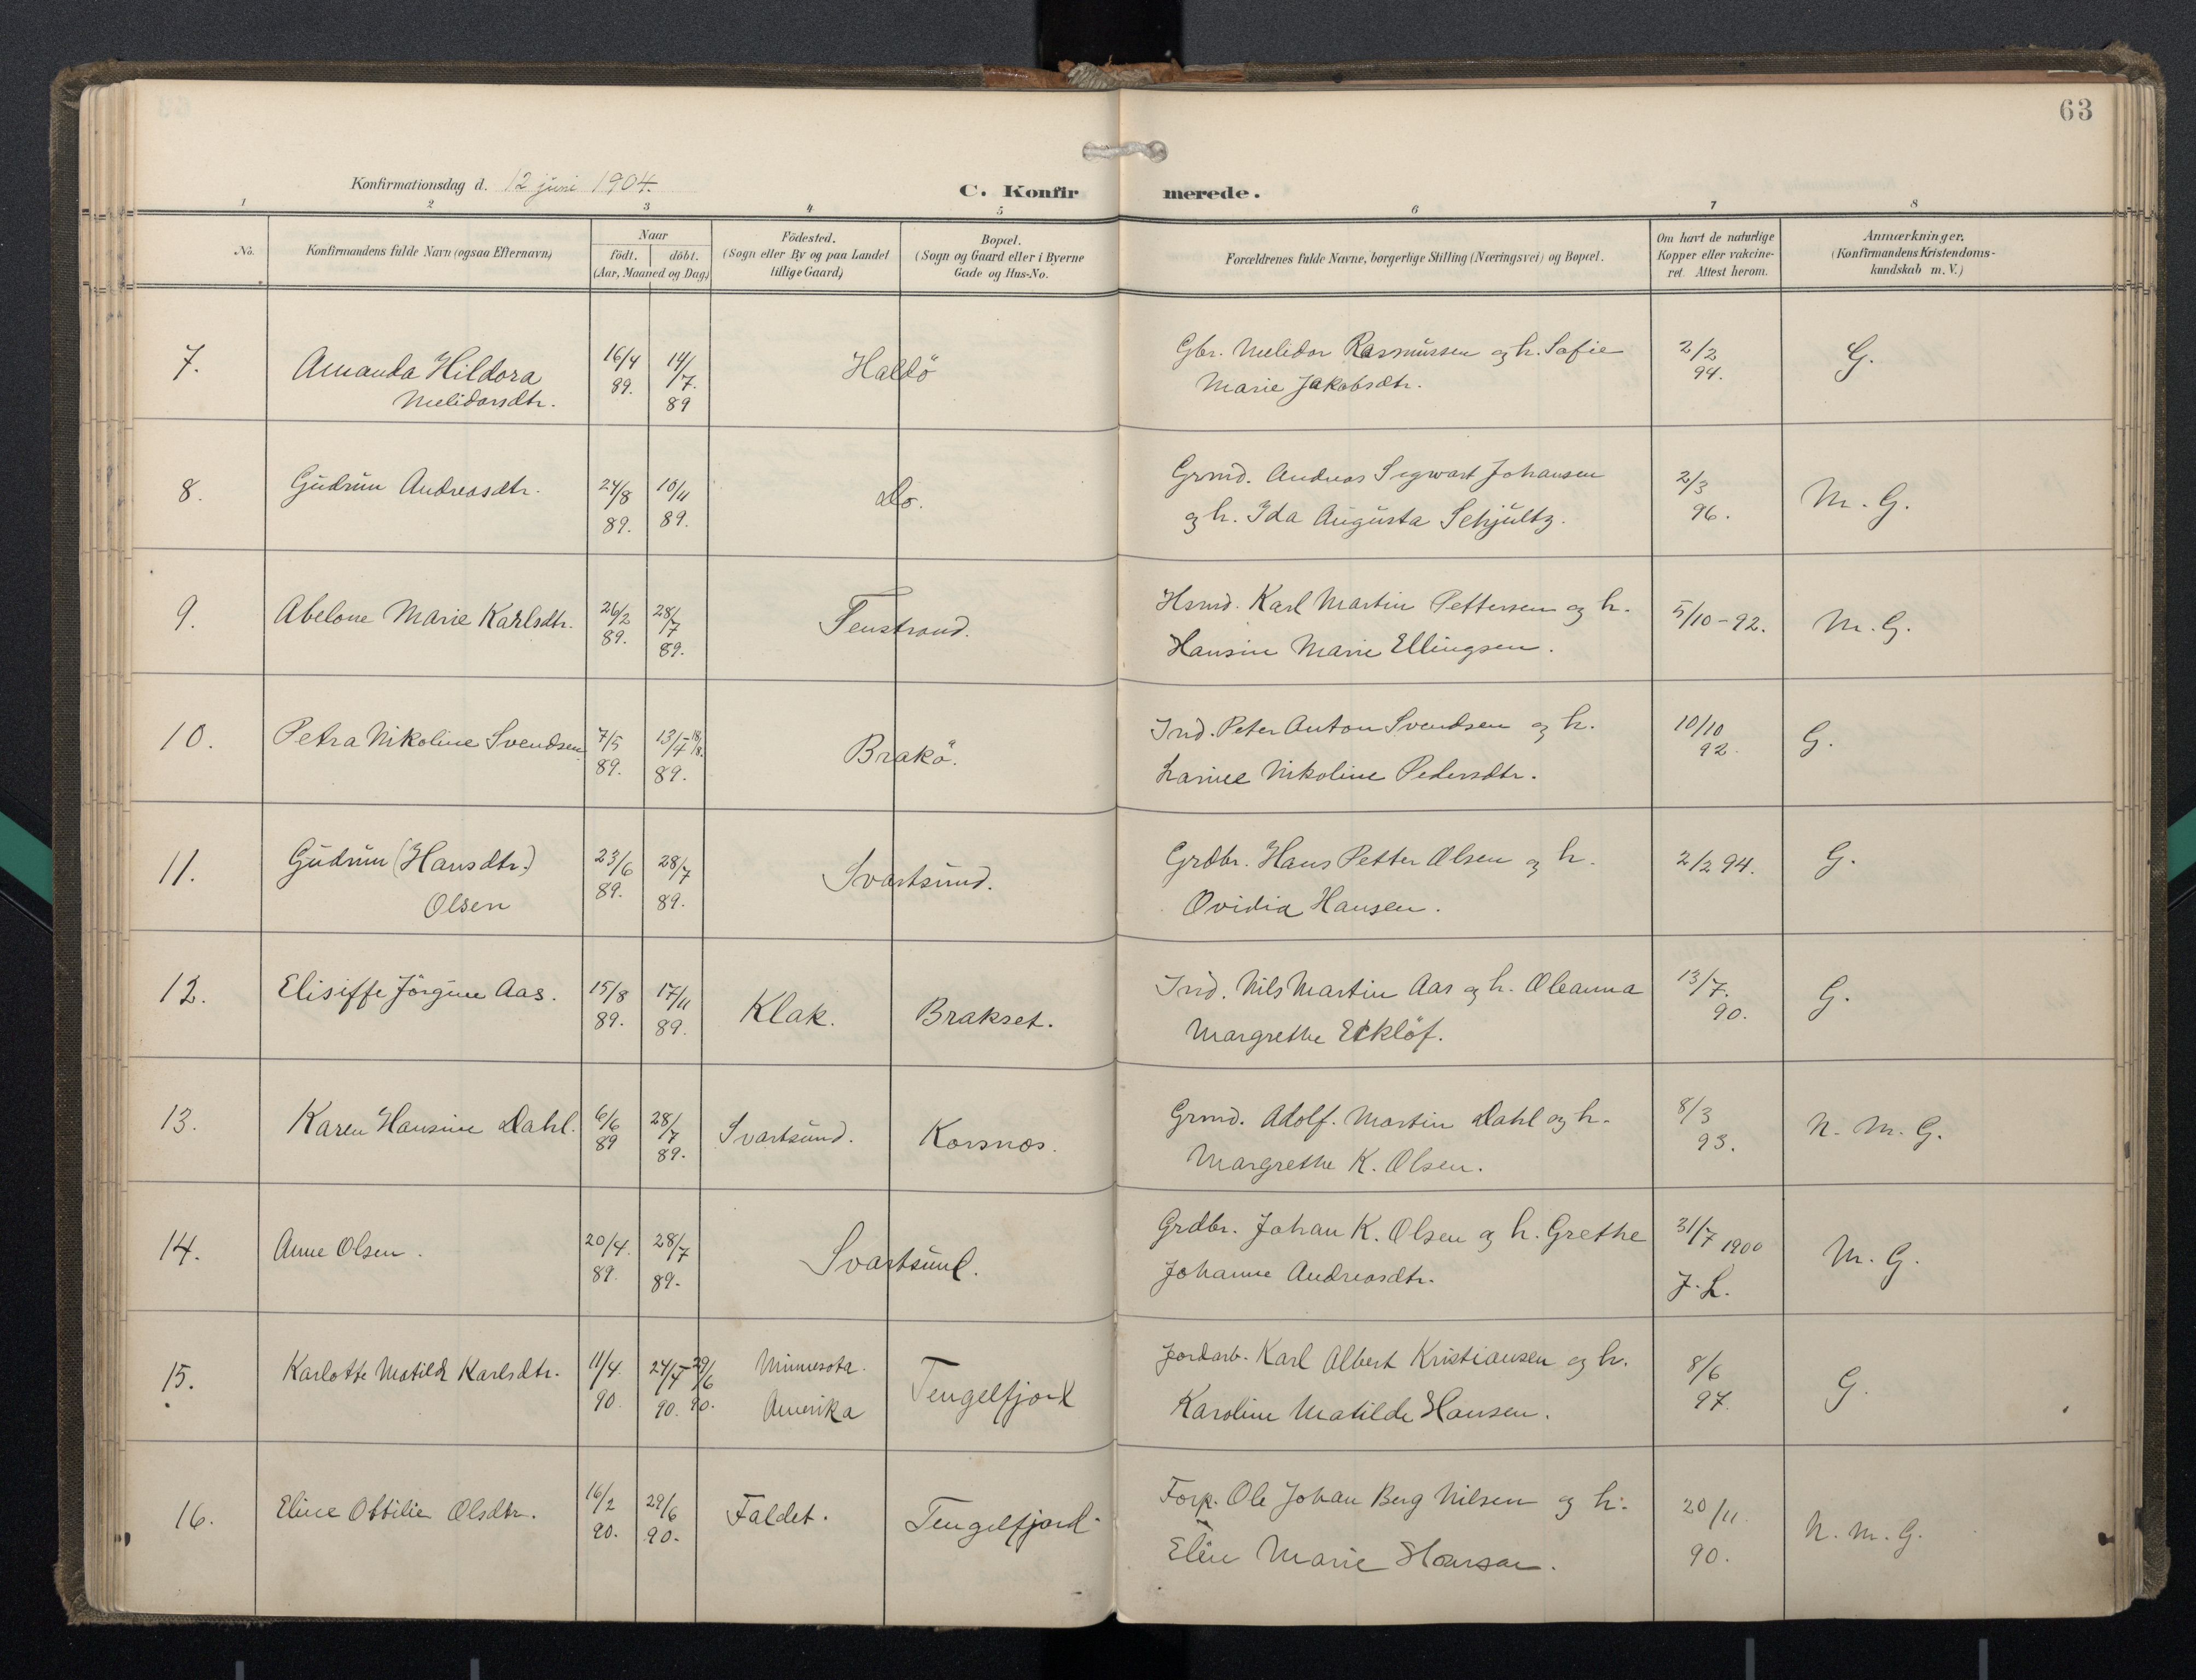 63
Konfirmationsdag d. 12 juni 1904.
C. Konfirmerede.
1 2 3 4 5 6 7 8
No.
Konfirmandens fulde Navn (ogsaa Efternavn)
Naar
födt. döbt.
(Aar, Maaned og Dag)
Födested.
(Sogn eller By og paa Landet
tillige Gaard)
Bopæl.
(Sogn og Gaard eller i Byerne
Gade og Hus-No.
Forældrenes fulde Navne, borgerlige Stilling (Næringsvei) og Bopæl.
Om havt de naturlige
Kopper eller vakcine-
ret. Attest herom.
Anmærkninger.
(Konfirmandens Kristendoms-
kundskab m. V.)
7. Amanda Hildora 16/4 14/7. Haldö Gbr. Melidor Rasmussen og h. Sofie 2/2 G.
Melidorsdtr. 89. 89 Marie Jakobsdtr. 94.
8. Gudrun Andreasdtr. 24/8 10/11 do. Grmd. Andreas Sigwart Johansen 2/3 M. G.
89. 89. og h. Ida Augusta Schjultz. 96.
9. Abelone Marie Karlsdtr. 26/2 28/7 Tenstrand. Hsmd. Karl Martin Pettersen og h. 5/10-92. M. G.
89. 89. Hansine Marie Ellingsen.
10. Petra Nikoline Svendsen 7/5 13/7-18/8. Brakö. Ind. Peter Anton Svendsen og h. 10/10 G.
89. 89. Nikoline Pedersdtr. 92.
11. Gudrun (Hansdtr.) 23/6 28/7 Svartsund. Grdbr. Hans Petter Olsen og h. 2/2 94. G.
Olsen 89. 89. Ovidia Hansen.
12. Elisiffe Jörgine Aas. 15/8 17/11 Klak. Brakset. Ind. Nils Martin Aas og h. Oleanna 13/7. G.
89. 89. Margrethe Ecklöf. 90.
13. Karen Hansine Dahl. 6/6 28/7 Svartsund. Korsnæs. Grmd. Adolf. Martin Dahl og h. 8/3 N. M. G.
89 89. Margrethe K. Olsen. 93.
14. Anne Olsen. 20/4. 28/7 Svartsund. Grdbr. Johan K. Olsen og h. Grethe 31/7 1900 M. G.
89. 89. Johanne Andreasdtr. J. L.
15. Karlotte Matilde Karlsdtr. 11/4. 24/4-29/6 Minnesota. Tengelfjord Jordarb. Karl Albert Kristiansen og h. 8/6 G.
90. 90. 90. Amerika Karoline Matilde Hansen. 97.
16. Eline Ottilie Olsdtr. 16/2 29/6 Faldet. Tengelfjord. Forp. Ole Johan Berg Nilsen og h. 20/11. N. M. G.
90. 90. Elen Marie Hansen. 90.